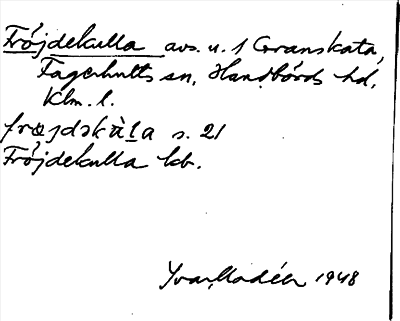 Fröjdekulla avs. u. 1 Granskata,
Fagerhults sn, Handbörds hd,
Klm. l.
frøjdəkàḷa s. 21
Fröjdekulla kb.
Ivar Modéer 1948